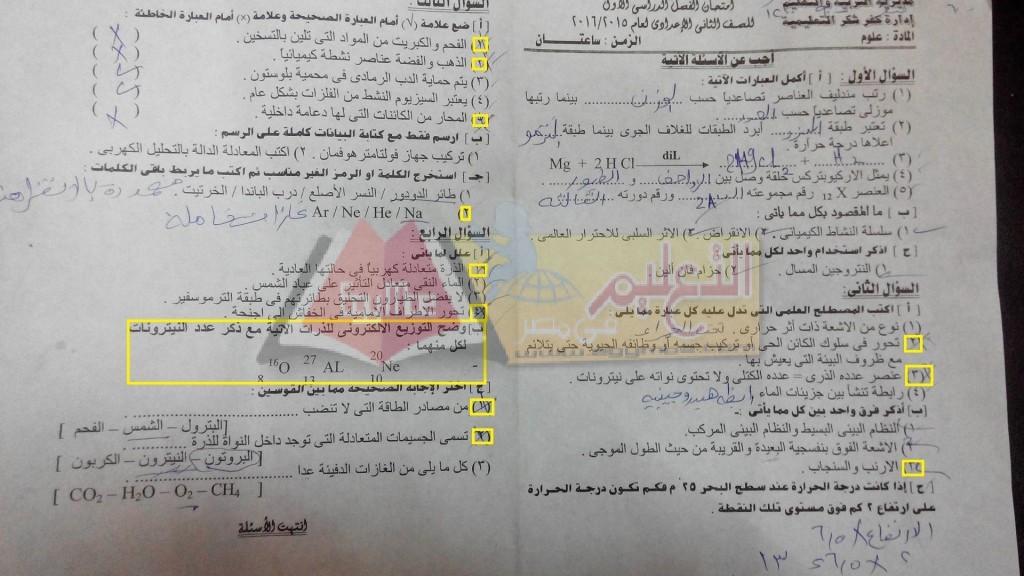 امتحان الفصل الدراسى الأول
للصف الثانى الإعدادى لعام ٢٠١٦/٢٠١٥
الزمن: ساعتان
مديرية التربية والتعليم
إدارة كفر شكر التعليمية
المادة: علوم
أجب عن الأسئلة الآتية
السؤال الأول : [ أ ] أكمل العبارات الآتية :
(١) رتب مندليف العناصر تصاعديا حسب الوزن بينما رتبها
موزلى تصاعديا حسب العدد
(٢) تعتبر طبقة ابرد الطبقات للغلاف الجوى بينما طبقة الثرمو
اعلاها درجة حرارة
(٣) Mg + 2 HCl diL → MgCl2 + H2
(٤) يمثل الاركيوبتركس حلقة وصل بين الزواحف و الطيور
(٥) العنصر 12 X رقم مجموعته 2A ورقم دورته الثالثة
[ ب ] ما المقصود بكل مما يأتى :
١) سلسلة النشاط الكيميائى ٢) الانقراض ٣) الاثر السلبى للاحترار العالمى .
[ ج ] اذكر استخدام واحد لكل مما يأتى :
١) النتروجين المسال . ٢) حزام فان ألين .
السؤال الثانى :
[ أ ] أكتب المصطلح العلمى التى تدل عليه كل عبارة مما يلى :
(١) نوع من الاشعة ذات أثر حرارى .
(٢) تحور فى سلوك الكائن الحى أو تركيب جسمه أو وظائفه الحيوية حتى يتلائم
مع ظروف البيئة التى يعيش بها .
(٣) عنصر عدده الذرى = عدده الكتلى ولا تحتوى نواته على نيترونات .
(٤) رابطة تنشأ بين جزيئات الماء رابطة هيدروجينية
[ب] أذكر فرق واحد بين كل مما يأتى :
١) النظام البيئى البسيط والنظام البيئى المركب.
٢) الاشعة الفوق بنفسجية البعيدة والقريبة من حيث الطول الموجى .
٣) الارنب والسنجاب .
[ ج ] إذا كانت درجة الحرارة عند سطح البحر ٢٥ م فكم تكون درجة الحرارة
على ارتفاع ٢ كم فوق مستوى تلك النقطة .
الارتفاع × ٦٫٥
السؤال الثالث :
[ أ ] ضع علامة (√) أمام العبارة الصحيحة وعلامة (x) أمام العبارة الخاطئة :
(١) الفحم والكبريت من المواد التى تلين بالتسخين . ( X )
(٢) الذهب والفضة عناصر نشطة كيميائياً . ( X )
(٣) يتم حماية الدب الرمادى فى محمية يلوستون .
(٤) يعتبر السيزيوم النشط من الفلزات بشكل عام .
(٥) المحار من الكائنات التى لها دعامة داخلية . ( X )
[ ب ] ارسم فقط مع كتابة البيانات كاملة على الرسم :
١) تركيب جهاز فولتامتر هوفمان . ٢) اكتب المعادلة الدالة بالتحليل الكهربى .
[ جـ ] استخرج الكلمة او الرمز الغير مناسب ثم اكتب ما يربط باقى الكلمات :
١) طائر الدودو / النسر الأصلع / درب الباندا / الخرتيت
٢) Ar / Ne / He / Na غازات خاملة
السؤال الرابع :
[ أ ] علل لما يأتى :
الذرة متعادلة كهربياً فى حالتها العادية .
الماء النقى متعادل التأثير على عباد الشمس .
يفضل الطيارون التحليق بطائراتهم فى طبقة الثرموسفير .
تحور الأطراف الأمامية فى الخفاش إلى اجنحة .
ب ] وضح التوزيع الالكترونى للذرات الآتية مع ذكر عدد النيترونات
لكل منهما :
16 8 O 27 13 AL 20 10 Ne -
[ج ] اختر الإجابة الصحيحة مما بين القوسين :
(١) من مصادر الطاقة التى لا تنضب
[ البترول – الشمس – الفحم ]
(٢) تسمى الجسيمات المتعادلة التى توجد داخل النواة للذرة
[ البروتون – النيترون – الكربون ]
(٣) كل ما يلى من الغازات الدفيئة عدا
[ CO2 – H2O – O2 – CH4 ]
انتهت الأسئلة
التعليم
فى مصر